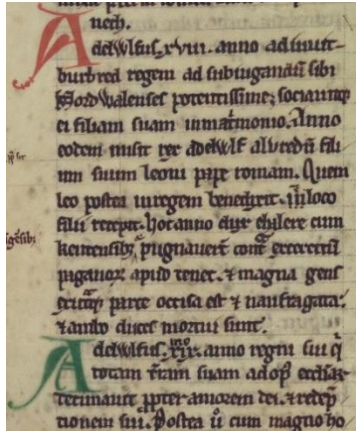 uerh.
Adelwlfus . xviii . anno adiuuit
burhred regem ad subiugandū sibi
Nordwalenses potentissime; sociauitqʒ
ei filiam suam in matrimonio. Anno
eodem misit rex adelwlf alvredū fili
um suum leoni pape romam. Quem
leo postea in regem benedixit. in loco
filii recepit. hoc anno
kentensibʒ pugnauerūt contᵃ exercitū
paganoꝝ apud tenet. ⁊ magna gens
parte occisa est ⁊ naufragata.
⁊ ambo duces mortui sunt.
Adelwlfus . xix . anno regni sui q̄
totam t̄ram suam ad op̄
decimauit ꝓpter amorem dei. ⁊ redēp
tionem sui. Postea ū cum magno ho